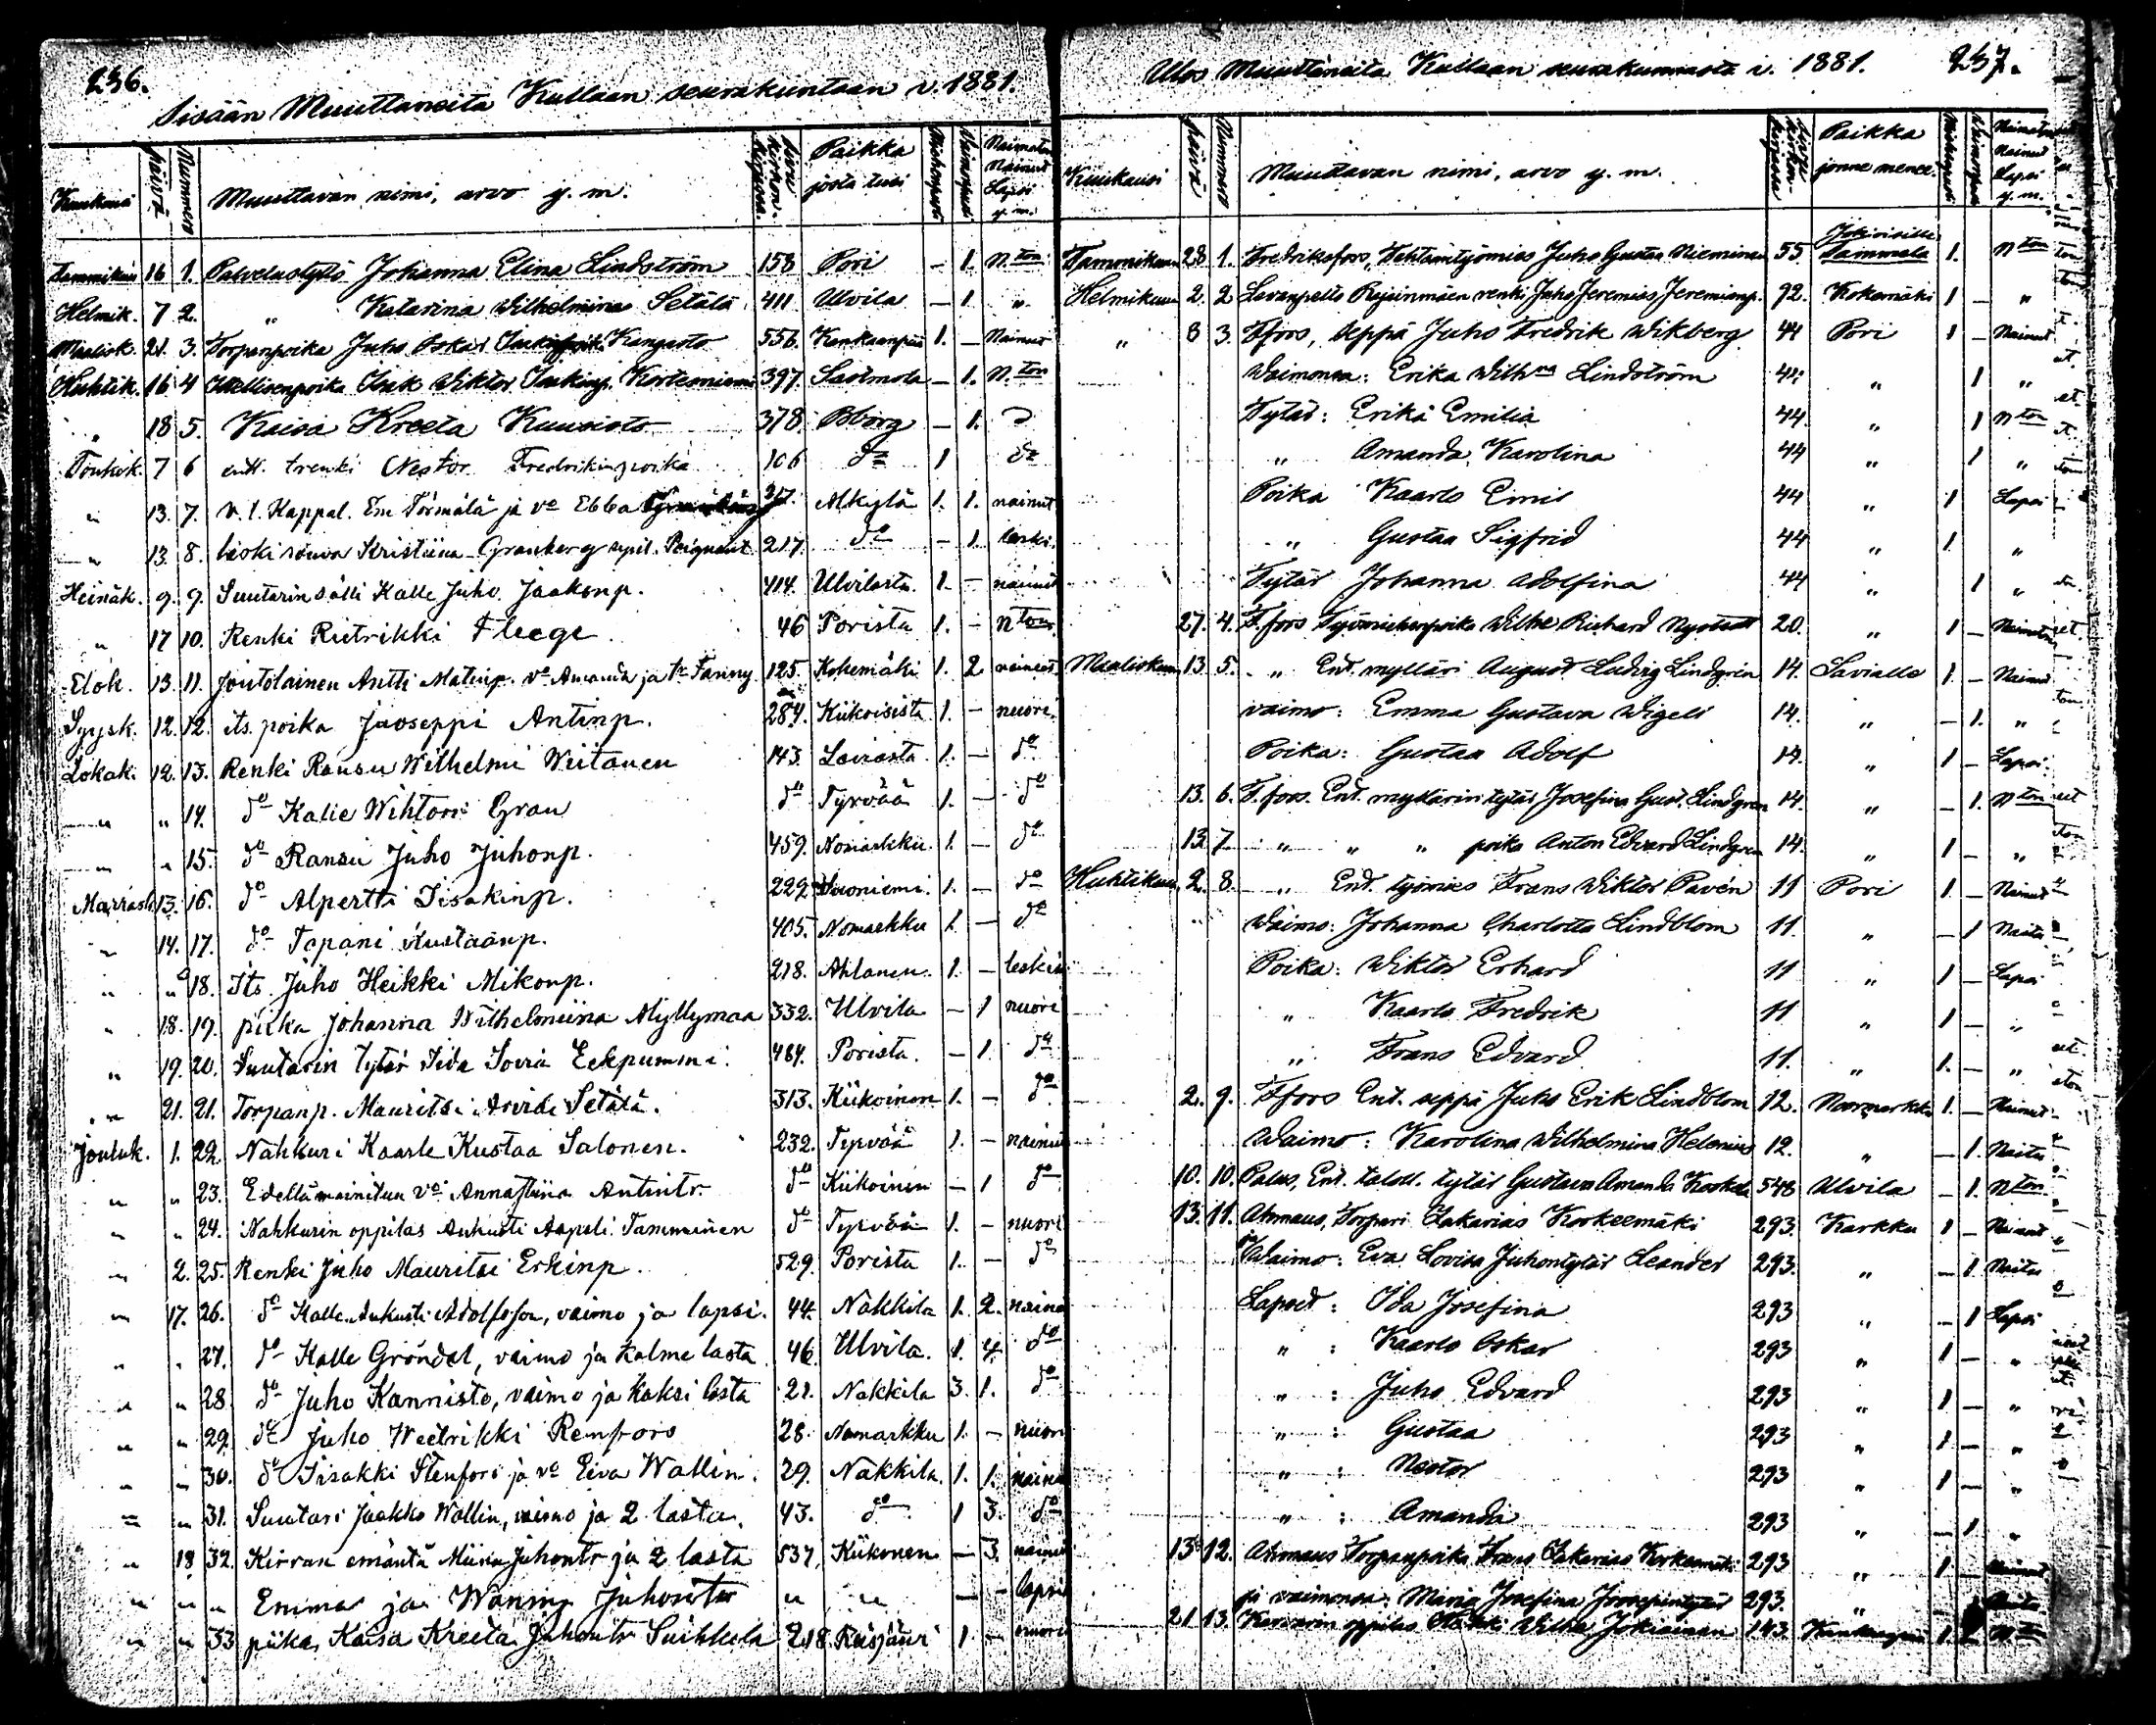 236.
Sisään Muuttaneita Kullaan seurakuntaan v. 1881.
Kuukausi päivä Nummero Muuttavan nimi, arvo y. m. sivu kirkonkirjassa Paikka josta tuli Miehenpuoli Vaimonpuoli Naimaton Nainut Lapsi y. m.
Tammikuu 16 1. Palvelustyttö Johanna Elina Lindström 158 Pori – 1. N.ton
Helmik. 7 2. „ Katarina Wilhelmina Setälä 411 Ulvila – 1. „
Maalisk. 21. 3. Torpanpoika Juho Oskar Kangasto 556. Kankaanpää 1. – Nainut
Huhtik. 16 4 Itsellisenpoika Isak Wiktor Isakinp. Korteniemi 397. – 1. N.ton
„ 18 5. Kaisa Kreeta Kuusisto 378. Bborg – 1.
Toukok. 7 6 entt. trenki Nestor Fredrikinpoika 106 do 1 do
„ 13. 7. v. t. Kappal. Em Törmälä ja vo Ebba 217. 1. 1. nainut
„ 13. 8. leski rouva Kristiina Granberg 217. do – 1. leski.
Heinäk. 9. 9. Suutarin sälli Kalle Juho Jaakonp. 414. Ulvilasta 1. – nainut
„ 17 10. Renki Rietrikki Fleege. 46 Porista 1. – nton
Elok. 13. 11. Joutolainen Antti Matinp. vo Amanda ja tr Fanny. 125. Kokemäki 1. 2 naineet
Syysk. 12. 12. its. poika Jaoseppi Antinp. 284. Kiikoisista 1. – nuori.
Lokak. 12. 13. Renki Ransu Wilhelmi Wiitanen 143. Laviasta 1. – do
„ „ 14. do Kalle Wihtori Gran do Tyrvää 1. – do
„ „ 15. do Ransu Juho Juhonp. 459. Normarkku 1. – do
Marrask. 13. 16. do Alpertti Iisakinp. 222. Suoniemi. 1. – do
„ 14. 17. do Tapani Kustaanp. 405. Nomarkku 1. – do
„ „ 18. Its. Juho Heikki Mikonp. 218. Ahlanen. 1. – leski
„ 18. 19. piika Johanna Wilhelmiina Myllymaa 332. Ulvila – 1 nuori
„ 19. 20. Suutarin tytär Iida Sovia Eekpummi. 484. Porista. – 1. do
„ 21. 21. Torpanp. Mauritsi Arvidi Setälä. 313. Kiikoinen 1. – do
Jouluk. 1. 22. Nahkuri Kaarle Kustaa Salonen. 232. Tyrvää 1. – nainut
„ „ 23. Edellämainitun vo Annastiina Antintr. do Kiikoinen – 1 do
„ „ 24. Nahkurin oppilas Auhusti Aapeli Tamminen do Tyrvää 1. – nuori
„ 2. 25. Renki Juho Mauritsi Erkinp. 529. Porista 1. – do
„ 17. 26. do Kalle Aukusti Adolfsson, vaimo ja lapsi. 44. Nakkila 1. 2. naine
„ „ 27. do Kalle Gröndal, vaimo ja kolme lasta 46. Ulvila. 1. 4. do
„ „ 28. do Juho Kannisto, vaimo ja kaksi lasta 21. Nakkila 3. 1. do
„ „ 29. do Juho Weetrikki Renfors 28. Nomarkku 1. – nuori
„ „ 30. do Iisakki Stenfors ja vo Eeva Wallin. 29. Nakkila. 1. 1. naine
„ „ 31. Suutari Jaakko Wallin, vaimo ja 2 lasta. 43. do 1 3. do
„ 18 32. Kirran emäntä Miina Juhontr ja 2 lasta 537. Kiikonen – 3. nainut
„ „ „ Emma ja Juhontr „ „ – – lapsi
„ „ 33 piika, Kaisa Kreeta Juhontr Suikkela 218. 1 – nuori
Ulos Muuttaneita Kullaan seurakunnasta v. 1881. 237.
Kuukausi päivä Nummero Muuttavan nimi, arvo y. m. sivu kirkonkirjassa Paikka jonne menee. Miehenpuoli Vaimonpuoli Naimaton Nainut Lapsi y. m.
Tammikuu 28 1. Fredriksfors, Tehtäntyömies Juho Gustaa Nieminen 55. Jokioisille Tammela 1. Nton
Helmikuu 2. 2 Levanpelto renki Juho Jeremias Jeremianp. 92. Kokemäki 1 – „
„ 8 3. Ffors, Seppä Juho Fredrik Wikberg 44 Pori 1 – Nainut
Waimonsa: Erika Wilhna Lindström 44 „ 1 „
Tytär: Erika Emilia 44. „ 1 Nton
„ Amanda Karolina 44 „ 1 „
Poika Kaarlo Emil 44 „ 1 Lapsi
„ Gustaa Sigfrid 44 „ 1. „
Tytär Johanna Adolfina 44 „ 1 „
27. 4. F.fors Työmiehenpoika Wilhe Richard Nystedt 20. „ 1 – Naimaton
Maaliskuu 13 5. „ Ent. mylläri August Ludvig Lindgren 14. Lavialle 1. – Nainut
vaimo: Emma Gustava Wigell 14. „ – 1. „
Poika: Gustaa Adolf 14. „ 1 – Lapsi.
13. 6. F.fors. Ent. myllärin tytär Josefina Gust. Lindgren 14. „ – 1. Nton
13. 7 „ „ „ poika Anton Edvard Lindgren 14. „ 1 – „
Huhtikuu 2. 8. „ Ent. työmies Frans Wiktor Pavén 11 Pori 1. – Nainut
Waimo: Johanna Charlotta Lindblom 11. „ – 1 Naitu
Poika: Wiktor Erhard 11 „ 1 – Lapsi
„ Kaarlo Fredrik 11 „ 1 – „
„ Frans Edvard 11. „ 1. – „
2. 9. Ffors Ent. seppä Juho Erik Lindblom 12. Normarkku 1. – Nainut
Waimo: Karolina Wilhelmina Helenius 12. „ – 1. Naitu
10. 10. Palus, Ent. taloll. tytär Gustava Amanda Koskela 548 Ulvila – 1. Nton
13. 11. Ahmaus, Torpari Zakarias Korkeemäki 293. Karkku 1 – Nainut
Waimo: Eva Lovisa Juhontytär Leander 293. „ – 1 Naitu
Lapset: Ida Josefina 293 „ – 1 Lapsi
„ : Kaarlo Oskar 293 „ 1 – „
„ : Juho Edvard 293 „ 1 – „
„ : Gustaa 293 „ 1 – „
„ : Nestor 293 „ 1 – „
„ : Amanda 293 „ – 1 „
13. 12. Ahmaus Torpanpoika Frans Zakarias Korkeemäki 293 „ 1 – Nainut
ja vaimonsa: Maria Josefina Joosepintytär 293. „ Naitu
21. 13. oppilas Wilhe Jokiainen 143. Kankaanpää 1.